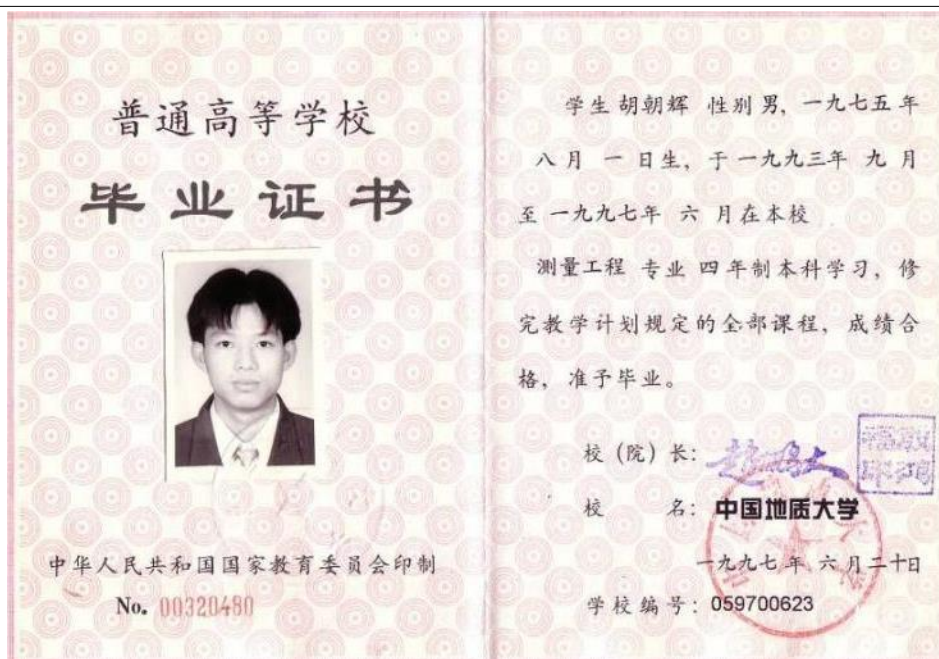 普通高等学校
毕业证书
中华人民共和国国家教育委员会印制
No. 00320480
学生 胡朝辉 性别 男, 一九七五年
八月 一 日生, 于 一九九三年 九 月
至 一九九七年 六 月在本校
测量工程 专业 四 年制本科学习, 修
完教学计划规定的全部课程, 成绩合
格, 准予毕业。
校 (院) 长: 赵鹏大
校 名: 中国地质大学
一九九七 年 六 月 二十 日
学校编号: 059700623